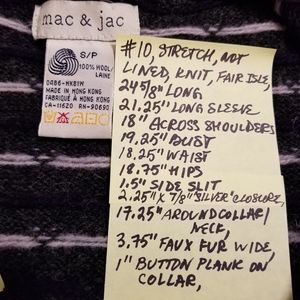 mac & jac
S/P
100% WOOL
LAINE
0486-HK81W
MADE IN HONG KONG
FABRIQUÉ À HONG KONG
CA-11620 RN-90690
#10, STRETCH, NOT
LINED, KNIT, FAIR ISLE,
24 5/8" LONG
21.25" LONG SLEEVE
18" ACROSS SHOULDERS
19.25" BUST
18.25" WAIST
18.75" HIPS
1.5" SIDE SLIT
2.25" X 7/8" "SILVER" CLOSURE,
17.25" AROUND COLLAR/
NECK,
3.75" FAUX FUR WIDE,
1" BUTTON PLANK ON
COLLAR,